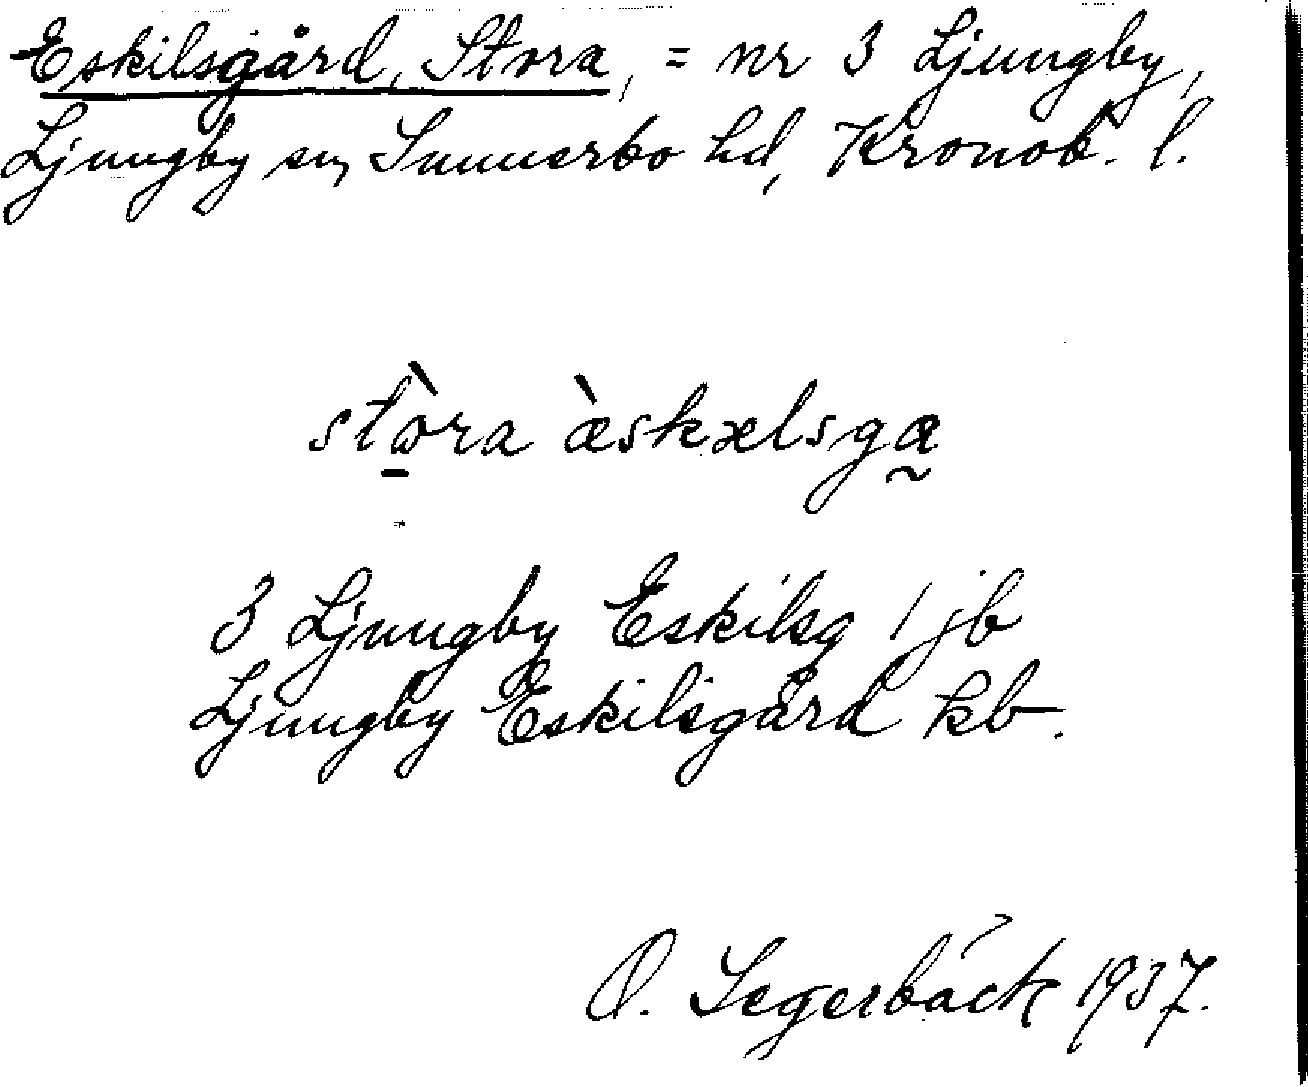 Eskilsgård, Stora, = nr 3 Ljungby,
Ljungby sn, Sunnerbo hd, Kronob. l.
stòra æ̀skəlsga
3 Ljungby Eskilsg 1 jb
Ljungby Eskilsgård kb.
O. Segerbäck 1937.